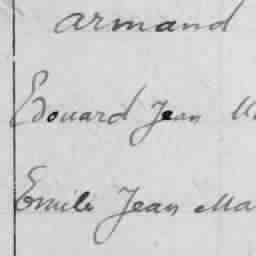 armand
Edouard Jean
Emile Jean Ma